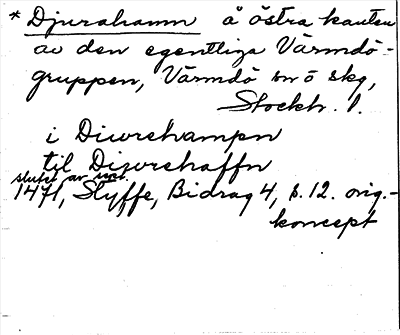 * Djurahamn å östra kanten
av den egentliga Värmdö-
gruppen, Värmdö sn ö skg,
Stockh. l.
i Diwrehampn
til Diwrehaffn
slutet av
1471, Styffe, Bidrag 4, s. 12. orig.-
koncept